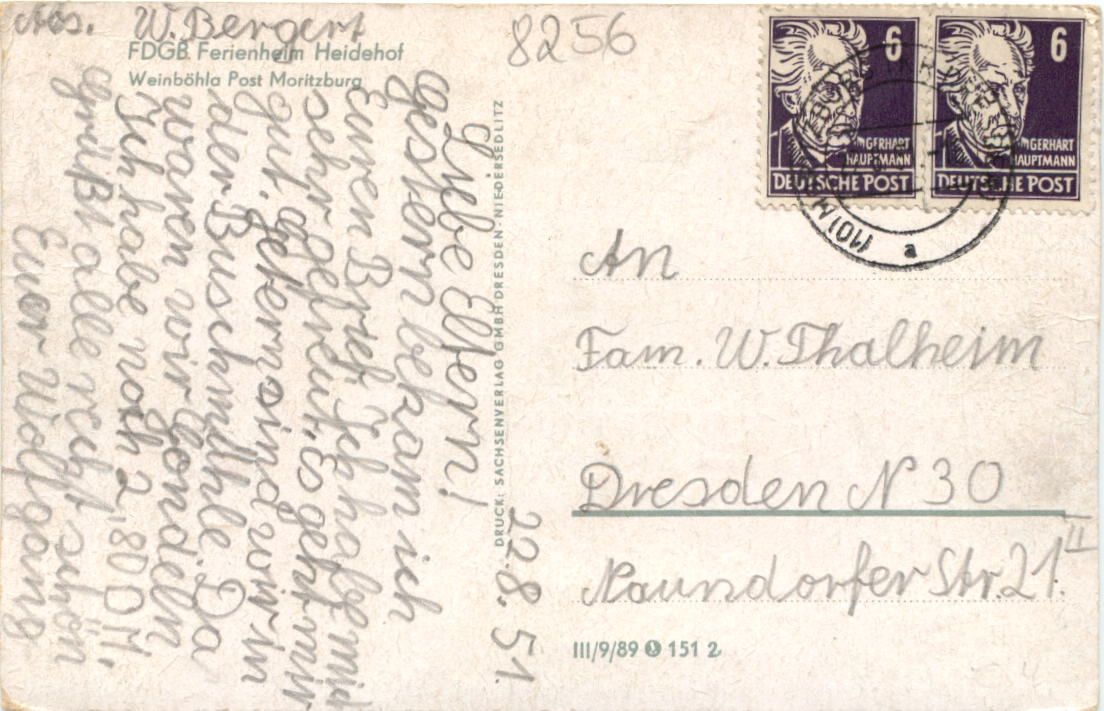 Abs. W. Bergert
FDGB Ferienheim Heidehof
Weinböhla Post Moritzburg
8256
Liebe Eltern!
22.8.51.
gestern bekam ich
Euren Brief. Ich habe mich
sehr gefreut. Es geht mir
gut, gestern sind wir in
der Buschmühle. Da
waren wir gondeln
Ich habe noch 2,80 M.
Grüßt alle recht schön
Euer Wolfgang
DRUCK: SACHSENVERLAG GMBH DRESDEN-NIEDERSEDLITZ
6
GERHART
HAUPTMANN
DEUTSCHE POST
6
GERHART
HAUPTMANN
DEUTSCHE POST
(10) M
a
An
Fam. W. Thalheim
Dresden N 30
Naundorfer Str. 21 II
III/9/89 151 2